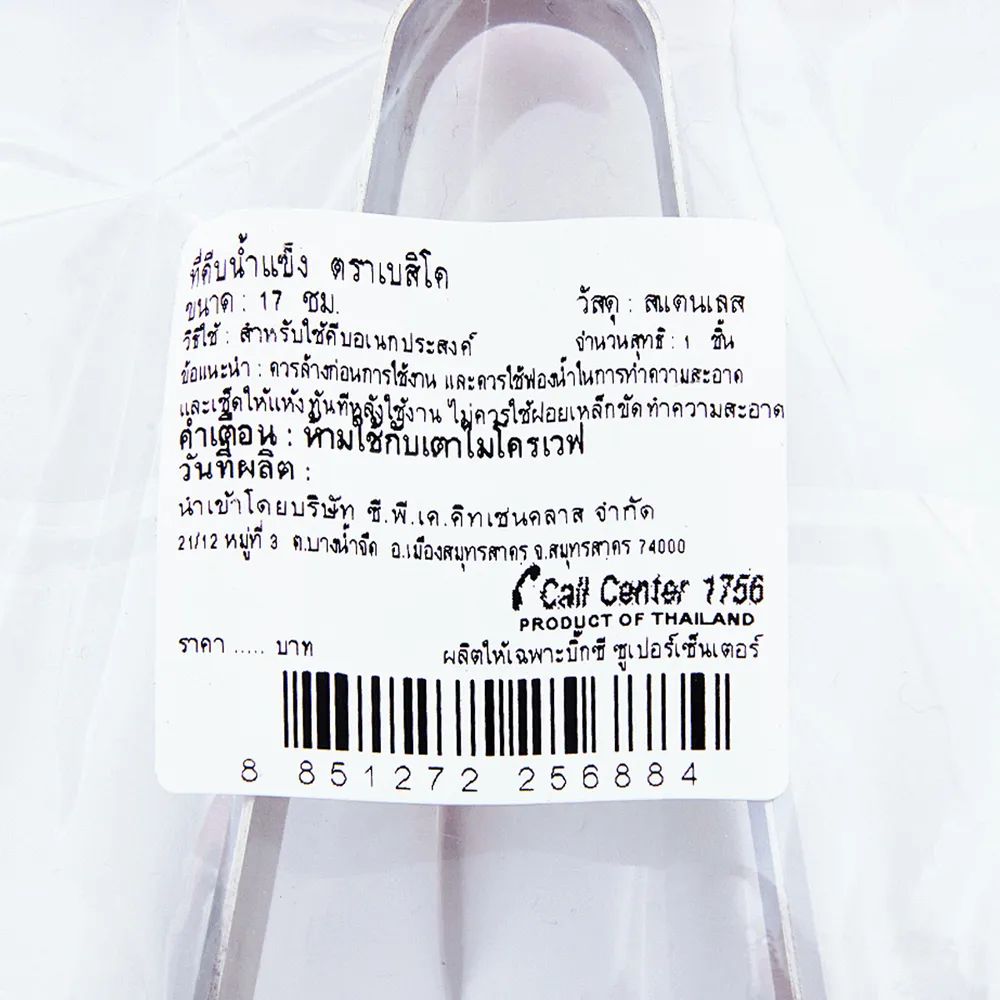 ที่คีบน้ำแข็ง ตราเบสิโค
ขนาด : 17 ซม. วัสดุ : สแตนเลส
วิธีใช้ : สำหรับใช้คีบอเนกประสงค์ จำนวนสุทธิ : 1 ชิ้น
ข้อแนะนำ : ควรล้างก่อนการใช้งาน และควรใช้ฟองน้ำในการทำความสะอาด
และเช็ดให้แห้งทันทีหลังใช้งาน ไม่ควรใช้ฝอยเหล็กขัดทำความสะอาด
คำเตือน : ห้ามใช้กับเตาไมโครเวฟ
วันที่ผลิต :
นำเข้าโดยบริษัท ซี.พี.เค.คิทเชนคลาส จำกัด
21/12 หมู่ที่ 3 ต.บางน้ำจืด อ.เมืองสมุทรสาคร จ.สมุทรสาคร 74000
Call Center 1756
PRODUCT OF THAILAND
ราคา ..... บาท ผลิตให้เฉพาะบิ๊กซี ซูเปอร์เซ็นเตอร์
8 851272 256884